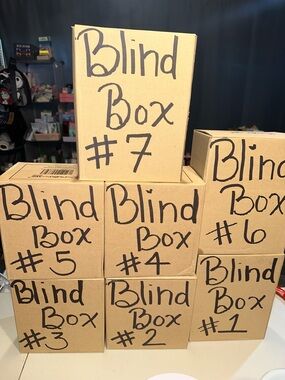 Blind
Box
#7
Blind
Box
#5
Blind
Box
#4
Blind
Box
#6
Blind
Box
#3
Blind
Box
#2
Blind
Box
#1